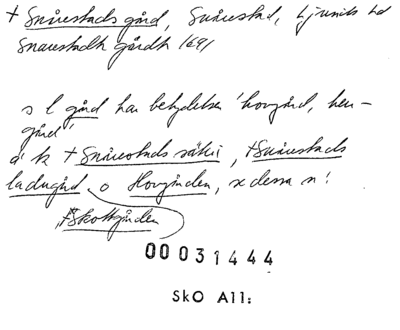 + Snårestads gård, Snårestad, Ljunits hd
Snaarestadh gårdh 1691
s l gård har betydelsen 'hovgård, herr-
gård'
å k + Snårestads säteri, + Snårestads
ladugård o Hovgården, x dessa n!
+ Skottgården
00031444
SkO All: